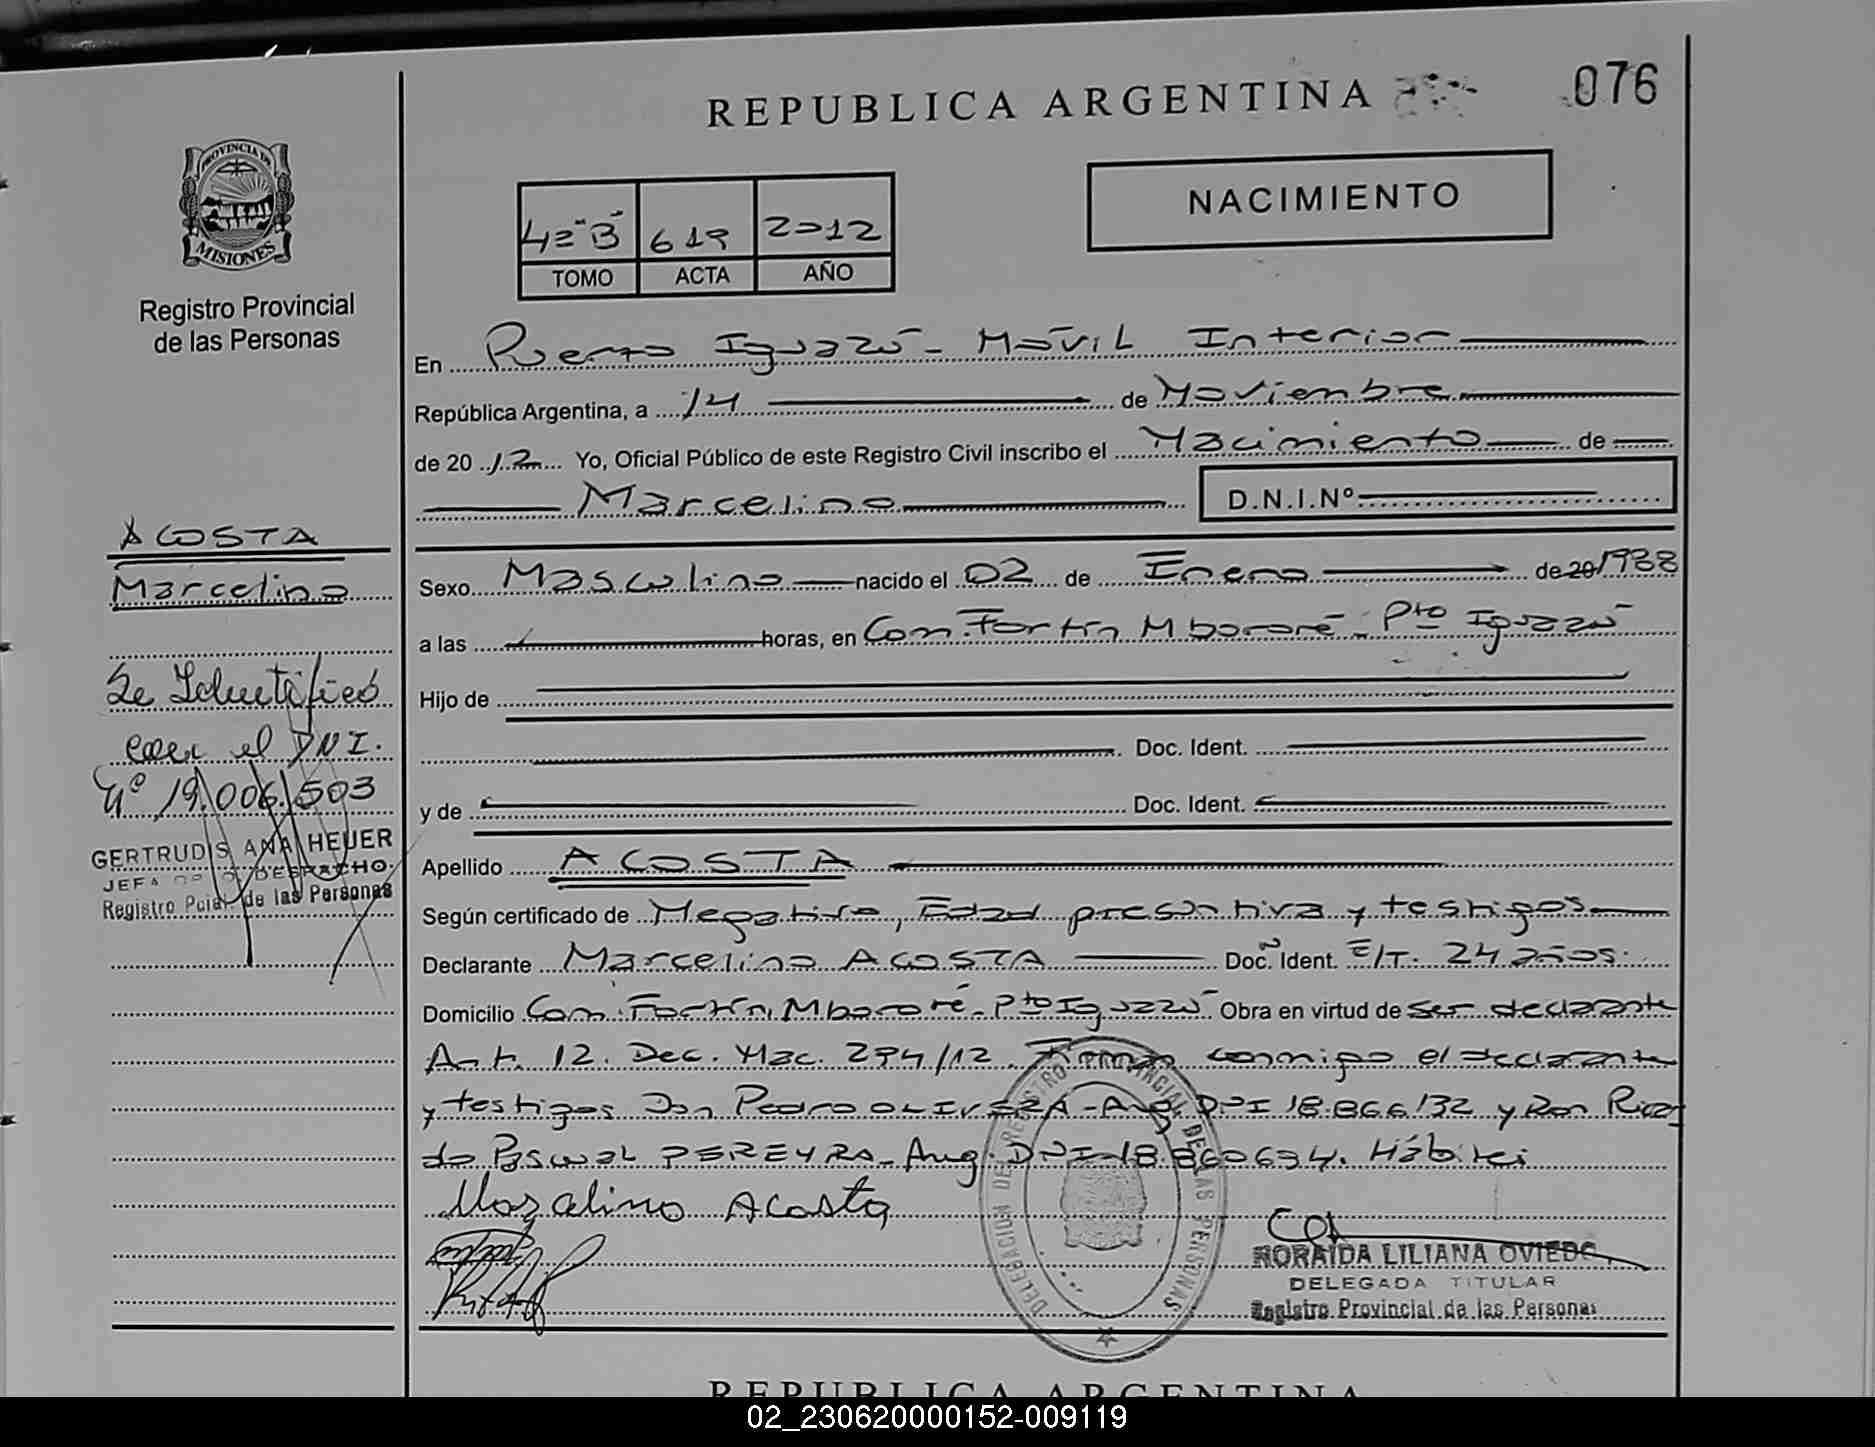 REPUBLICA ARGENTINA
076
PROVINCIA DE
MISIONES
Registro Provincial
de las Personas
NACIMIENTO
4º "B" 619 2012
TOMO ACTA AÑO
En Puerto Iguazú - Móvil Interior
República Argentina, a 14 de Noviembre
de 2012 Yo, Oficial Público de este Registro Civil inscribo el Nacimiento de
Marcelino D.N.I.Nº
ACOSTA
Marcelino
Se Identificó
con el DNI.
Nº 19.006.503
GERTRUDIS ANA HEUER
JEFA DESPACHO
Registro Pcial. de las Personas
Sexo Masculino nacido el 02 de Enero de 20 1988
a las horas, en Com. Fortín Mbororé - Pto Iguazú
Hijo de
Doc. Ident.
y de Doc. Ident.
Apellido ACOSTA
Según certificado de Negativo, Edad presuntiva y testigos
Declarante Marcelino ACOSTA Doc. Ident. E/T. 24 años.
Domicilio Com. Fortín Mbororé - Pto Iguazú Obra en virtud de ser declarante
Art. 12. Dec. Nac. 294/12. Firman conmigo el declarante
y testigos Don Pedro OLIVERA - Arg. DNI 18.866.132 y Don Ricar
do Pascual PEREYRA - Arg. DNI 18.860.694. Hábiles
Marcelino Acosta
DELEGACION DEL REGISTRO PROVINCIAL DE LAS PERSONAS
NORAIDA LILIANA OVIEDO
DELEGADA TITULAR
Registro Provincial de las Personas
REPUBLICA ARGENTINA
02_230620000152-009119